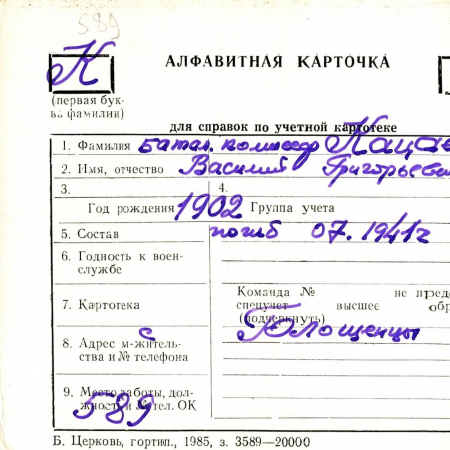 589
К
АЛФАВИТНАЯ КАРТОЧКА
(первая бук-
ва фамилии)
для справок по учетной картотеке
1. Фамилия батал. комиссар Кацав
2. Имя, отчество Василий Григорьеви
3.
4.
Год рождения 1902 Группа учета
5. Состав погиб 07.1941г
6. Годность к воен-
службе
Команда № не предо
7. Картотека спецучет высшее обр
(подчеркнуть)
8. Адрес м-житель-
ства и № телефона
с Блощенцы
9. Место работы, дол-
жность и № тел. ОК
589
Б. Церковь, гортип., 1985, з. 3589—20000